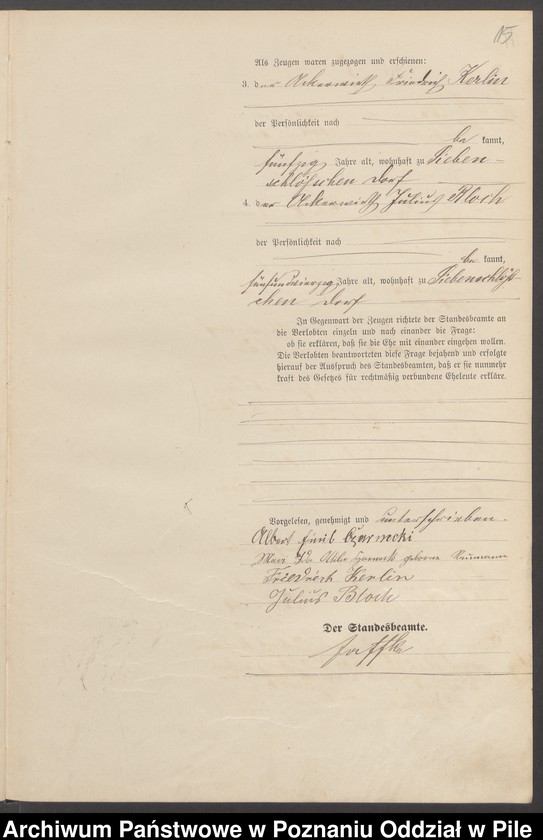 15
Als Zeugen waren zugezogen und erschienen:
3. der Ackerwirth Friedrich Kerlin
der Persönlichkeit nach
be kannt,
fünfzig Jahre alt, wohnhaft zu Sieben-
schlößchen Dorf
4. der Ackerwirth Julius Bloch
der Persönlichkeit nach
be kannt,
fünfundvierzig Jahre alt, wohnhaft zu Siebenschlöß-
chen Dorf
In Gegenwart der Zeugen richtete der Standesbeamte an
die Verlobten einzeln und nach einander die Frage:
ob sie erklären, daß sie die Ehe mit einander eingehen wollen.
Die Verlobten beantworteten diese Frage bejahend und erfolgte
hierauf der Ausspruch des Standesbeamten, daß er sie nunmehr
kraft des Gesetzes für rechtmäßig verbundene Eheleute erkläre.
Vorgelesen, genehmigt und unterschrieben.
Albert Emil Czarnecki
geborne Neumann
Friedrich Kerlin
Julius Bloch
Der Standesbeamte.
Jaffke
Archiwum Państwowe w Poznaniu Oddział w Pile